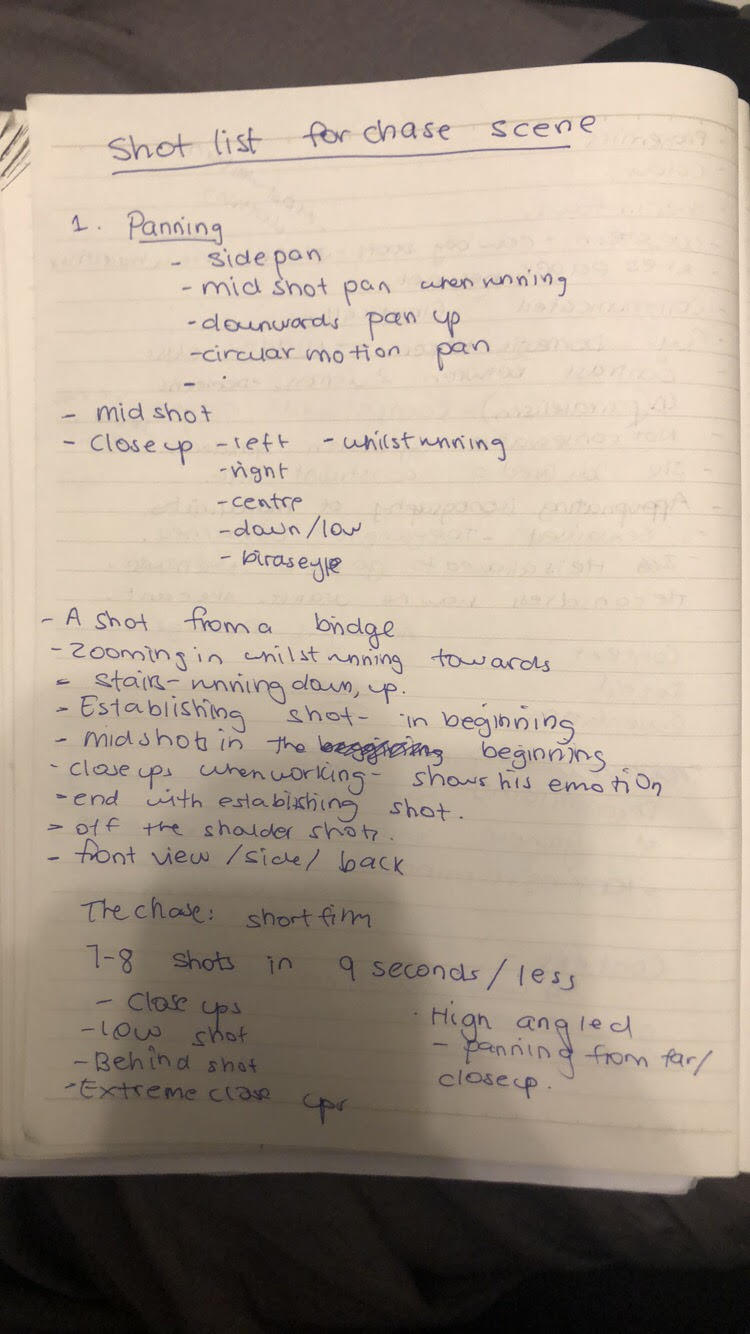 Shot list for chase scene
1. Panning
- side pan
- mid shot pan when running
- downwards pan up
- circular motion pan
- .
- mid shot
- close up - left - whilst running
- right
- centre
- down/low
- birdseye
- A shot from a bridge
- Zooming in whilst running towards
- stairs - running down, up.
- Establishing shot - in beginning
- mid shots in the beginning
- close ups when working - shows his emotion
- end with establishing shot.
- off the sholder shots.
- front view /side/ back
The chase: short film
7-8 shots in 9 seconds/less
- Close ups
- Low shot
- Behind shot
- Extreme close ups
· High angled
- panning from far/
closeup.